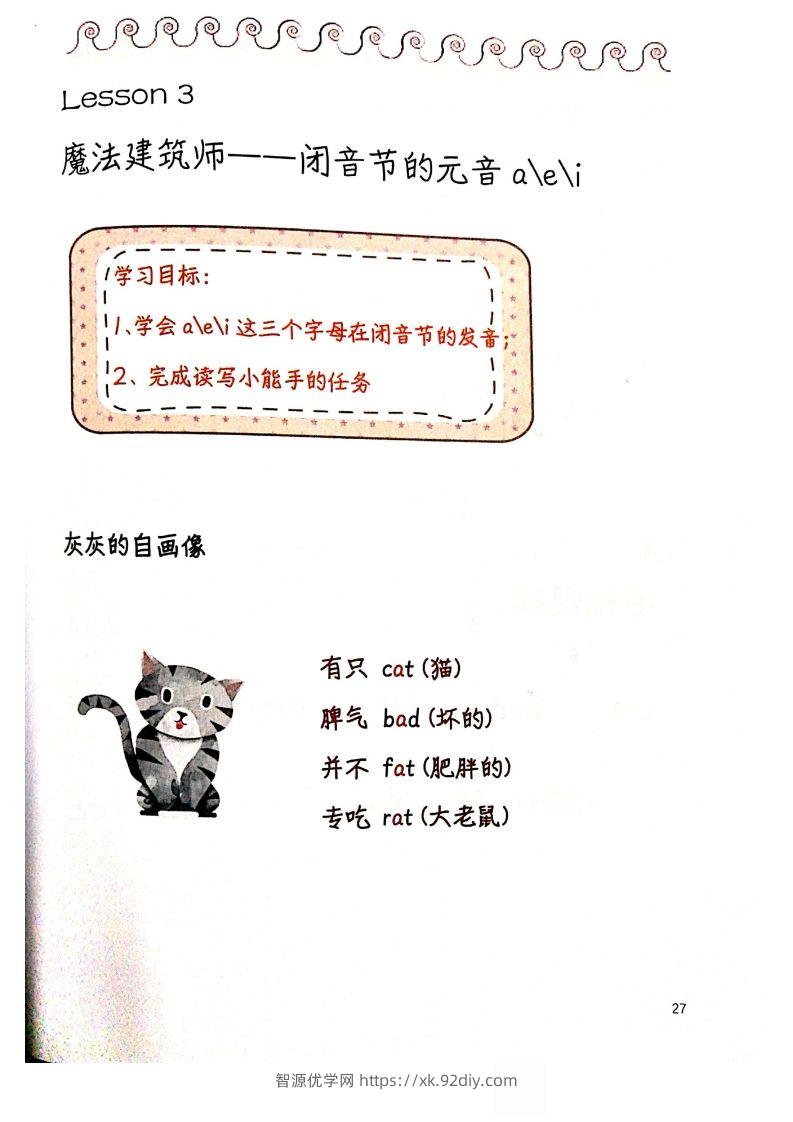 Lesson 3
魔法建筑师——闭音节的元音 a\e\i
学习目标:
1、学会 a\e\i 这三个字母在闭音节的发音;
2、完成读写小能手的任务
灰灰的自画像
有只 cat (猫)
脾气 bad (坏的)
并不 fat (肥胖的)
专吃 rat (大老鼠)
27
智源优学网 https://xk.92diy.com